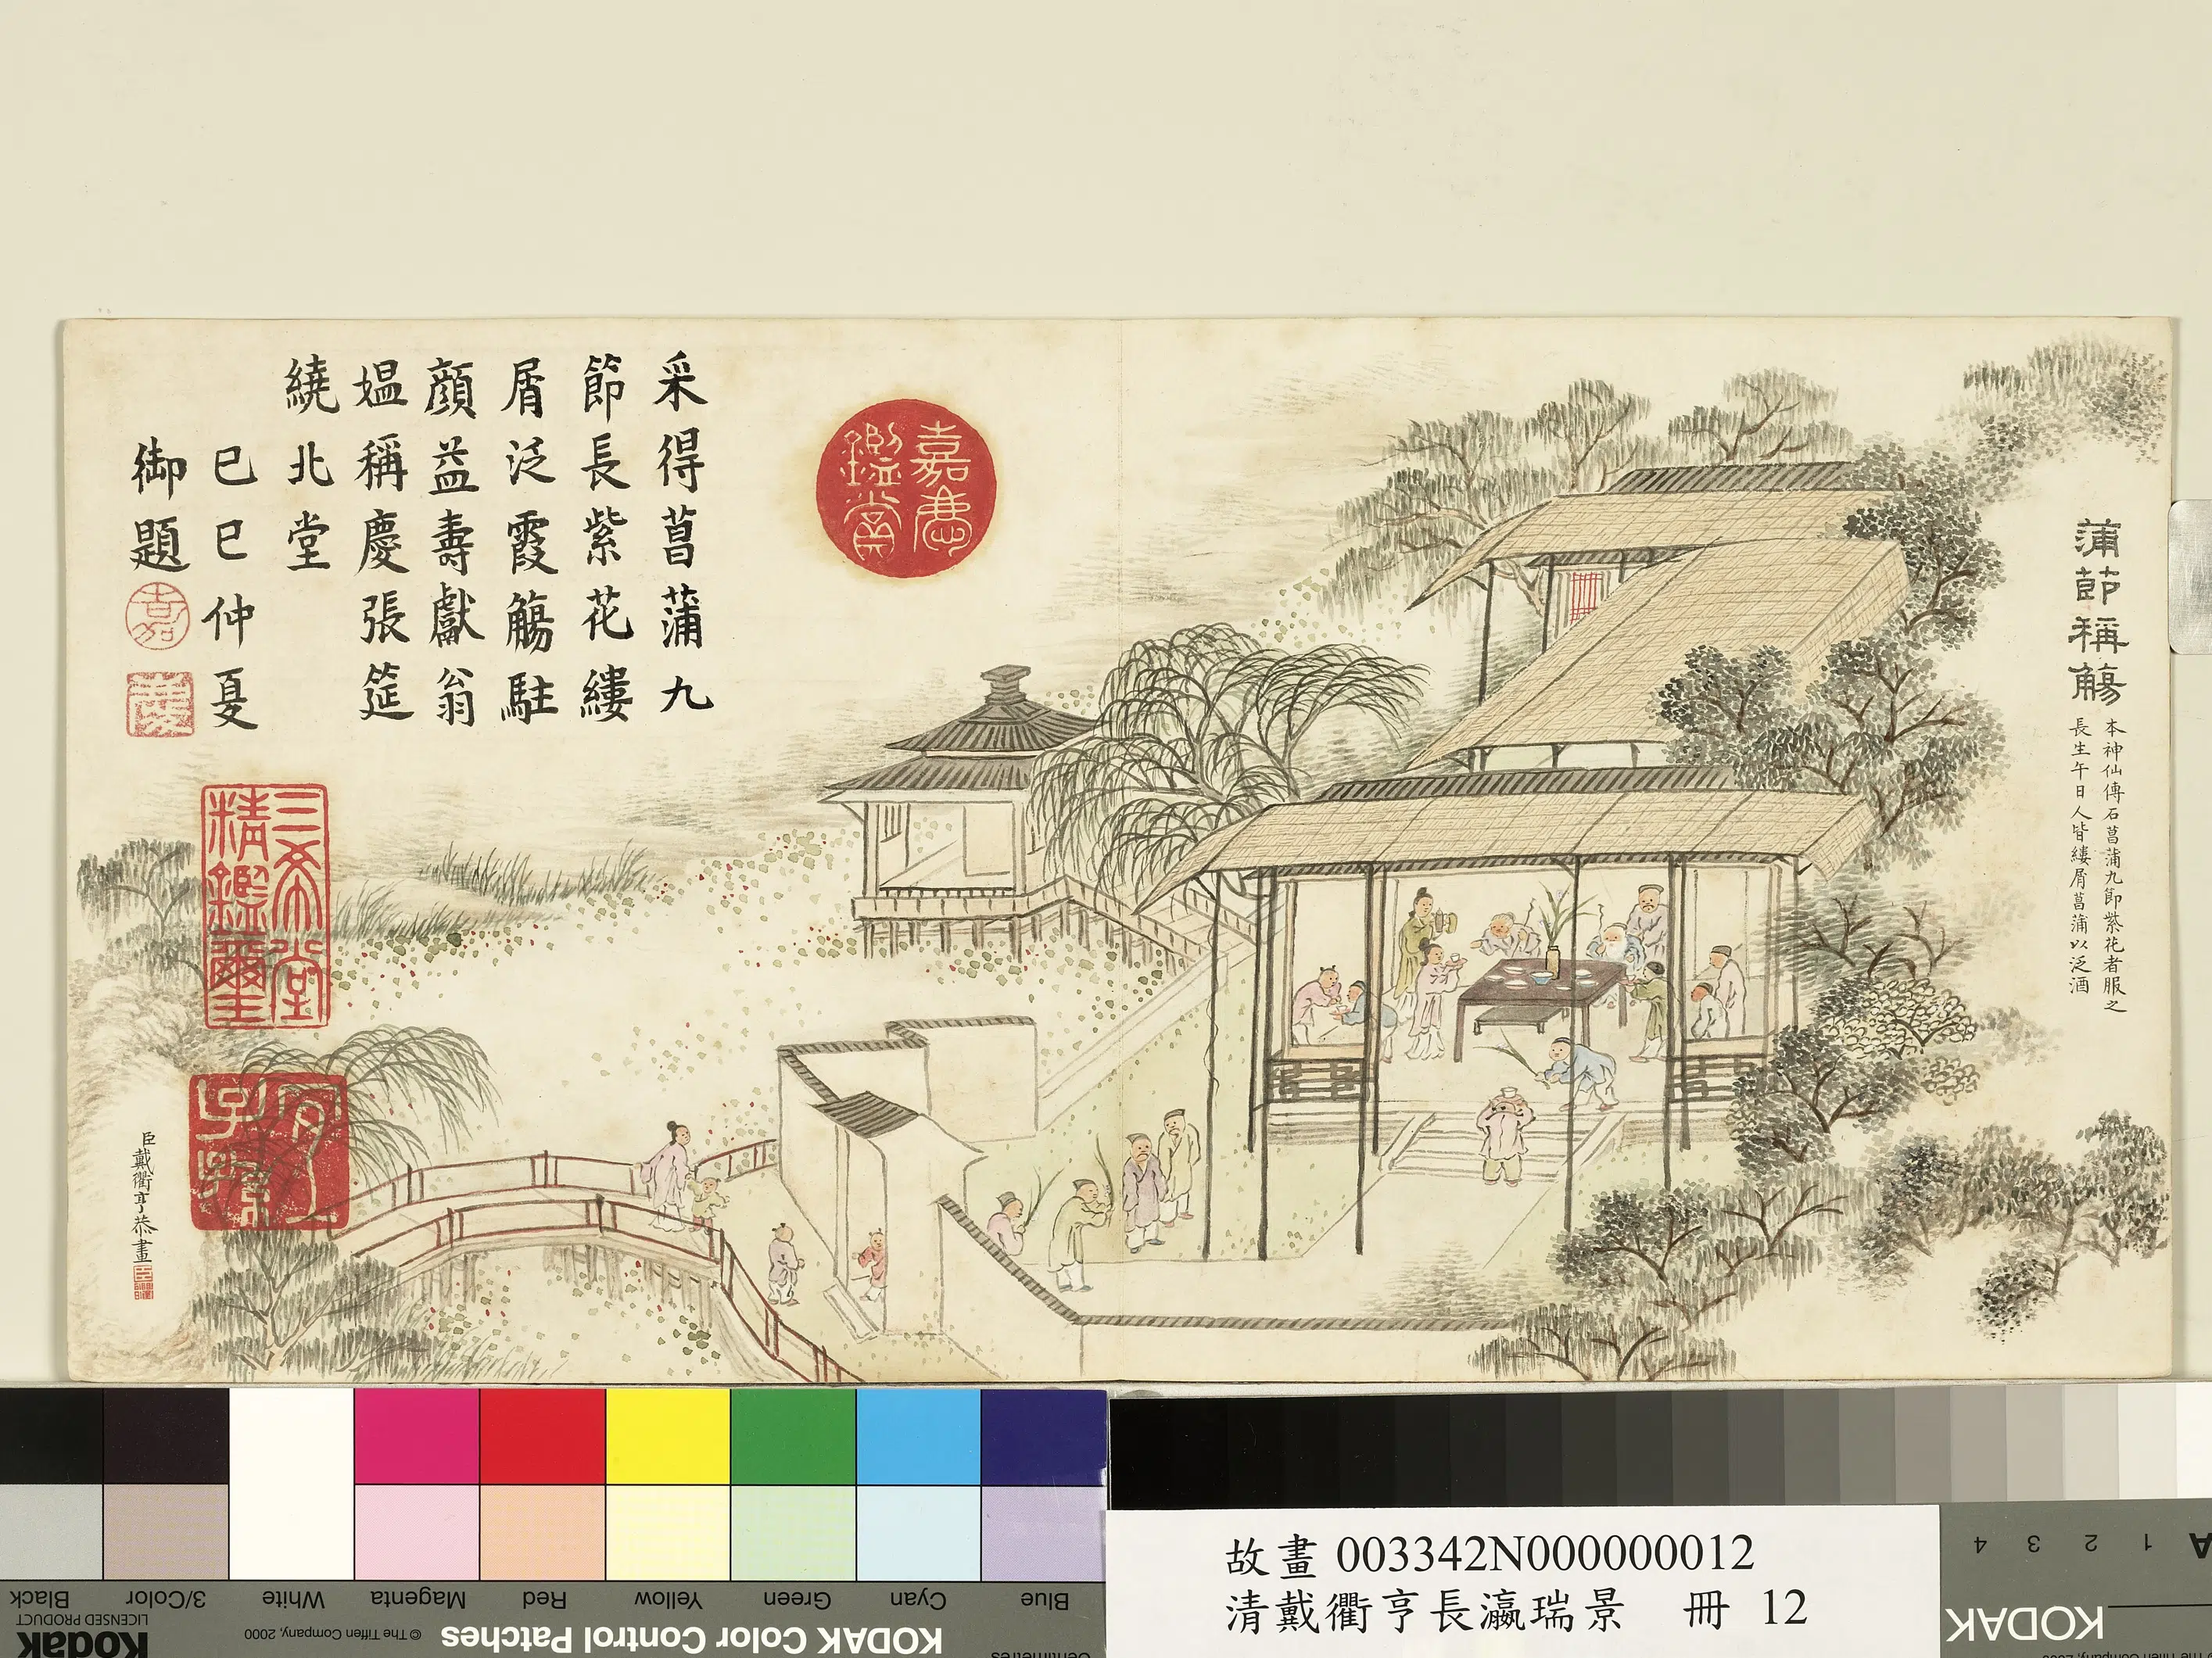 蒲節稱觴
本神仙傳石菖蒲九節紫花者服之
長生午日人皆縷屑菖蒲以泛酒
嘉慶
鑑賞
采得菖蒲九
節長紫花縷
屑泛霞觴駐
顏益壽獻翁
媼稱慶張筵
繞北堂
己巳仲夏
御題
嘉
慶
三希堂
精鑑璽
宜
子孫
臣戴衢亨恭畫
Blue
Cyan
Green
Yellow
Red
Magenta
White
3/Color
Black
KODAK Color Control Patches
© The Tiffen Company, 2000
Kodak
LICENSED PRODUCT
Centimetres
故畫 003342N000000012
清戴衢亨長瀛瑞景 冊 12
A 1 2 3 4
KODAK
The Tiffen Company, 2000